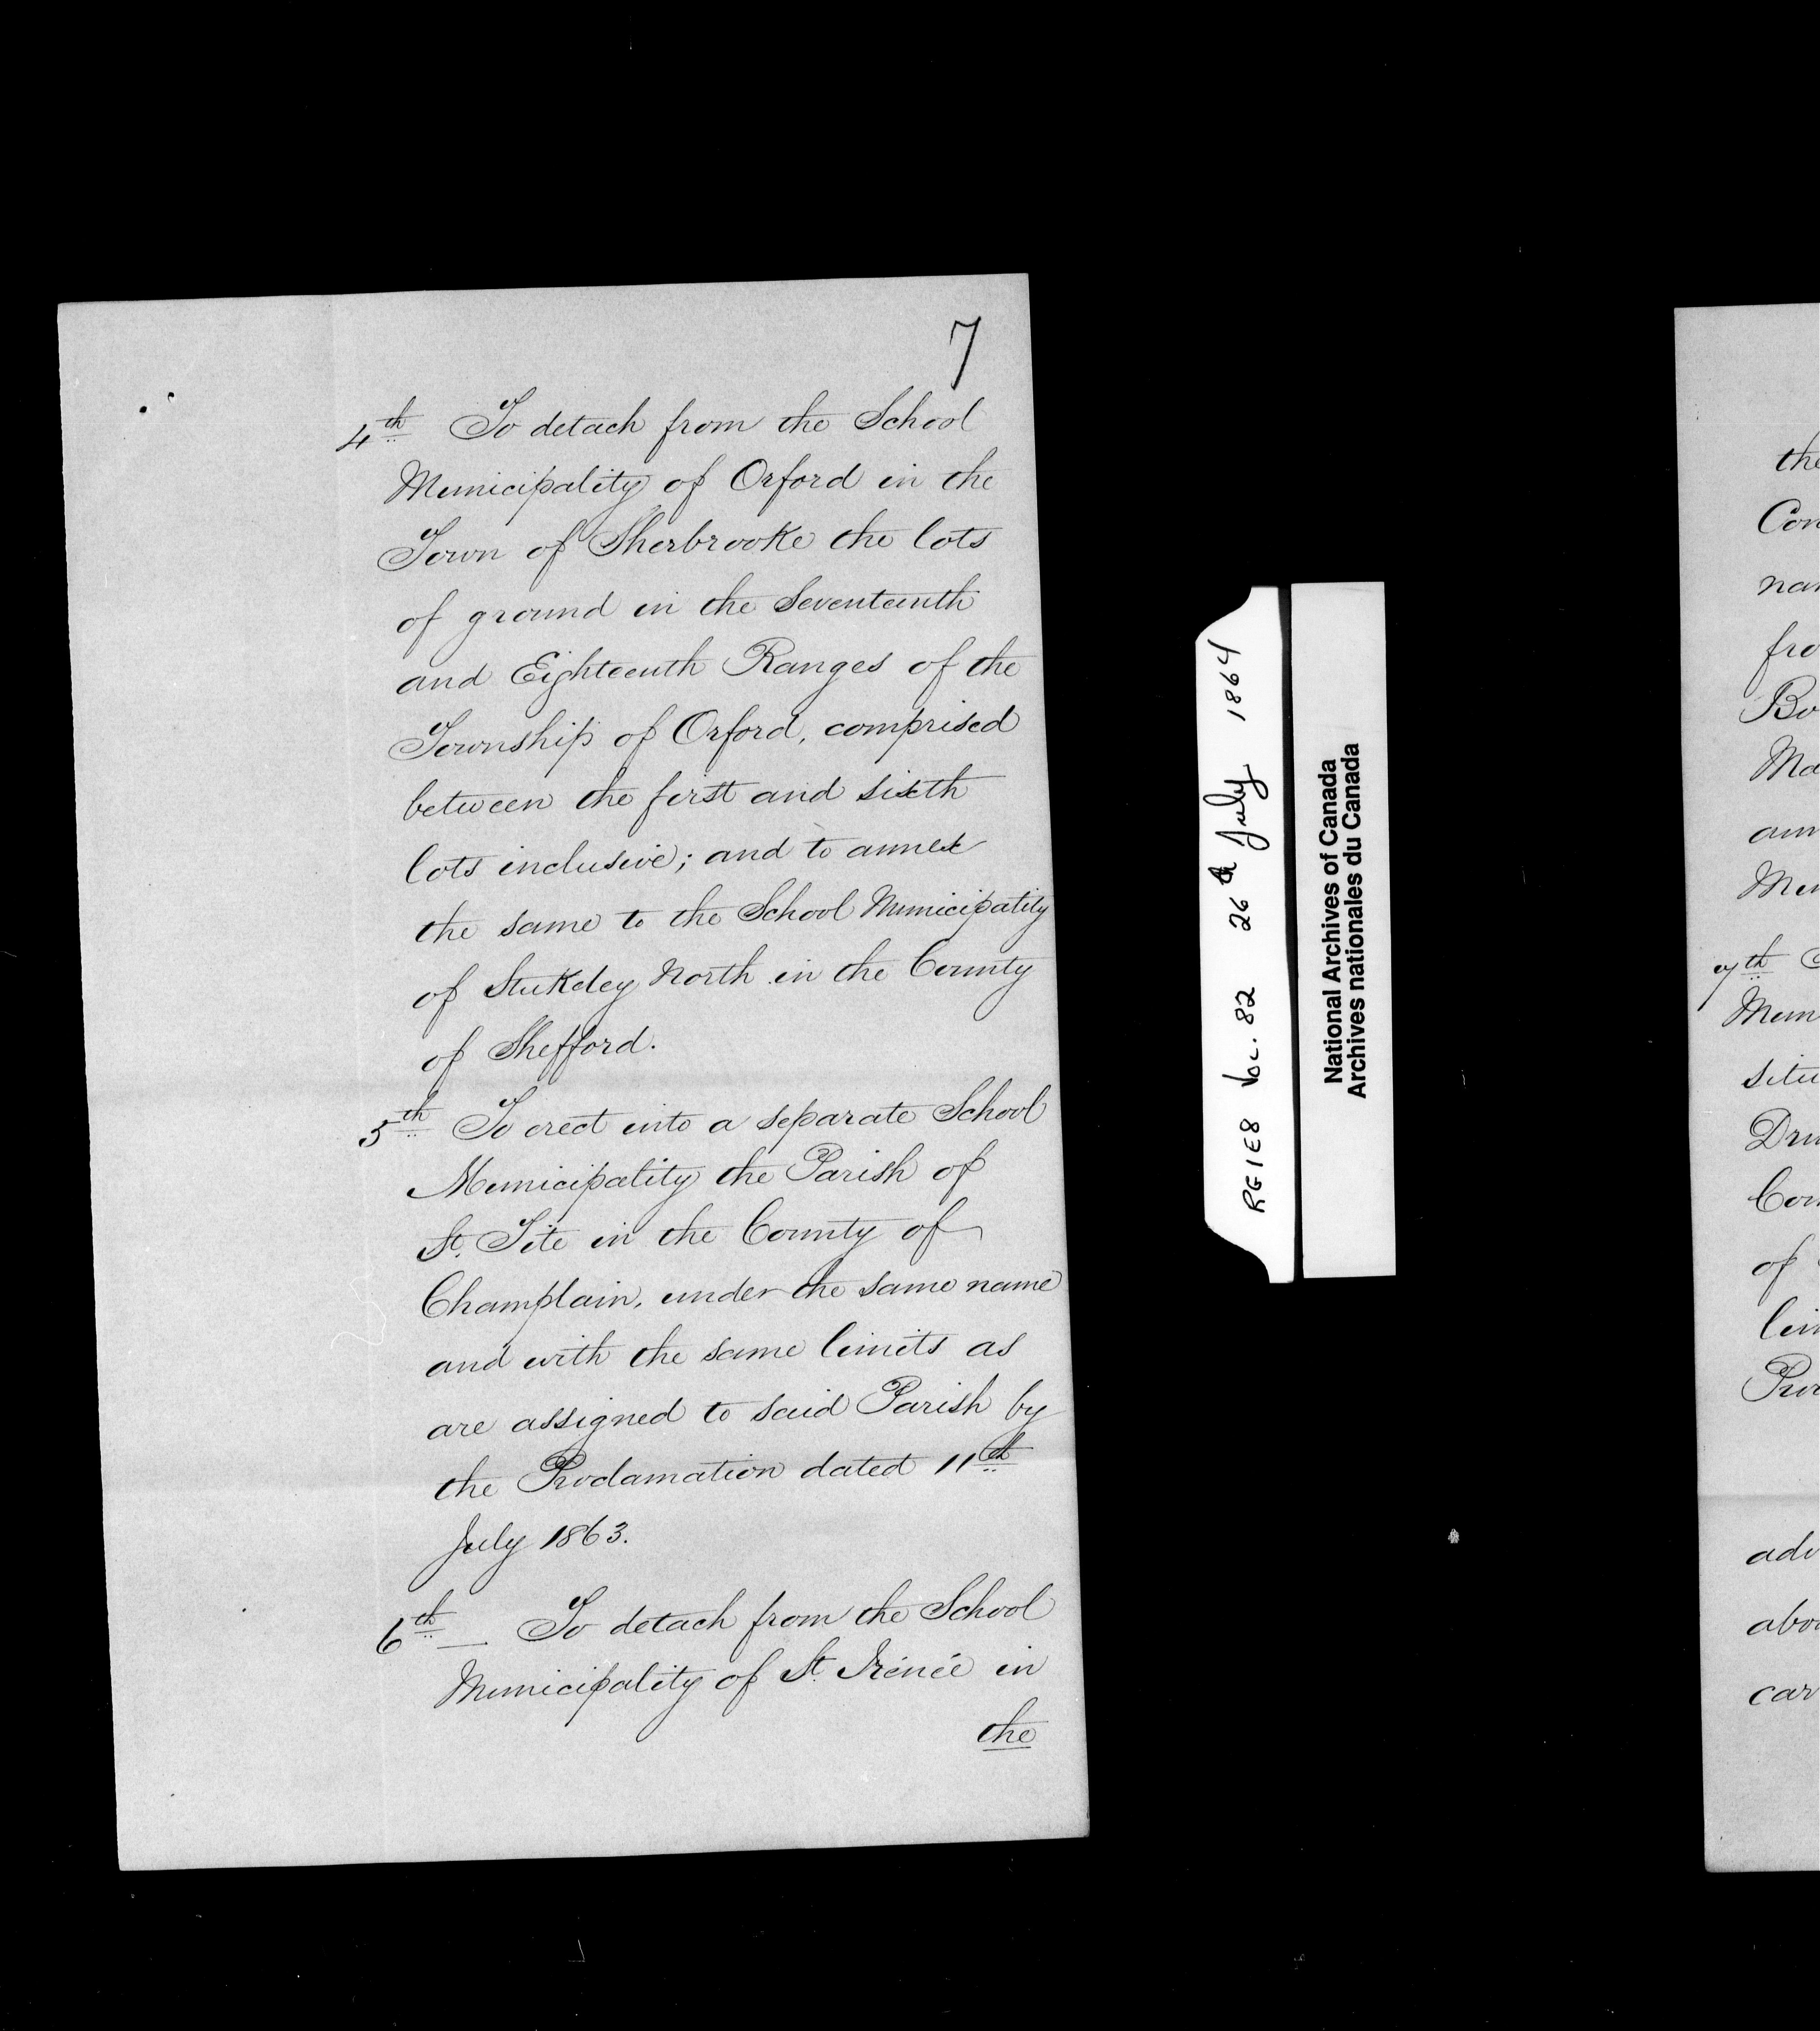 7
4th To detach from the School
Municipality of Orford in the
Town of Sherbrooke the lots
of ground in the Seventeenth
and Eighteenth Ranges of the
Township of Orford, comprised
between the first and sixth
lots inclusive; and to annex
the same to the School Municipality
of Stukeley North in the County
of Shefford.
5th To erect into a separate School
Municipality the Parish of
St. Tite in the County of
Champlain, under the same name
and with the same limits as
are assigned to said Parish by
the Proclamation dated 11th
July 1863.
6th — To detach from the School
Municipality of St. Irénée in
the
RG1E8 Vol. 82 26th July 1864
National Archives of Canada
Archives nationales du Canada
the
Con
nam
fro
Bo
Ma
ann
Mun
7th
Mun
situ
Dru
Cou
of
lim
Pro
adv
abo
car